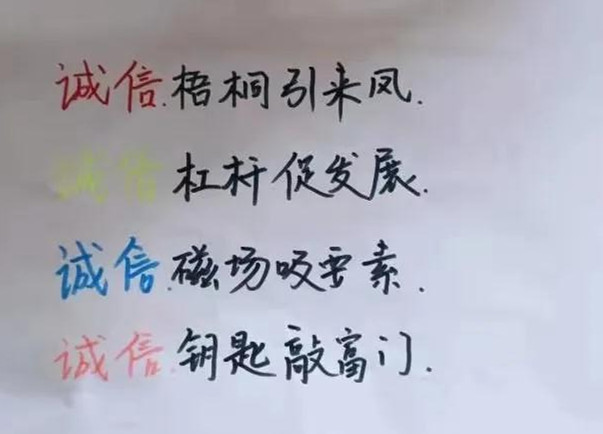 诚信.梧桐引来凤.
诚信 杠杆促发展.
诚信.磁场吸要素.
诚信.钥匙敲富门.